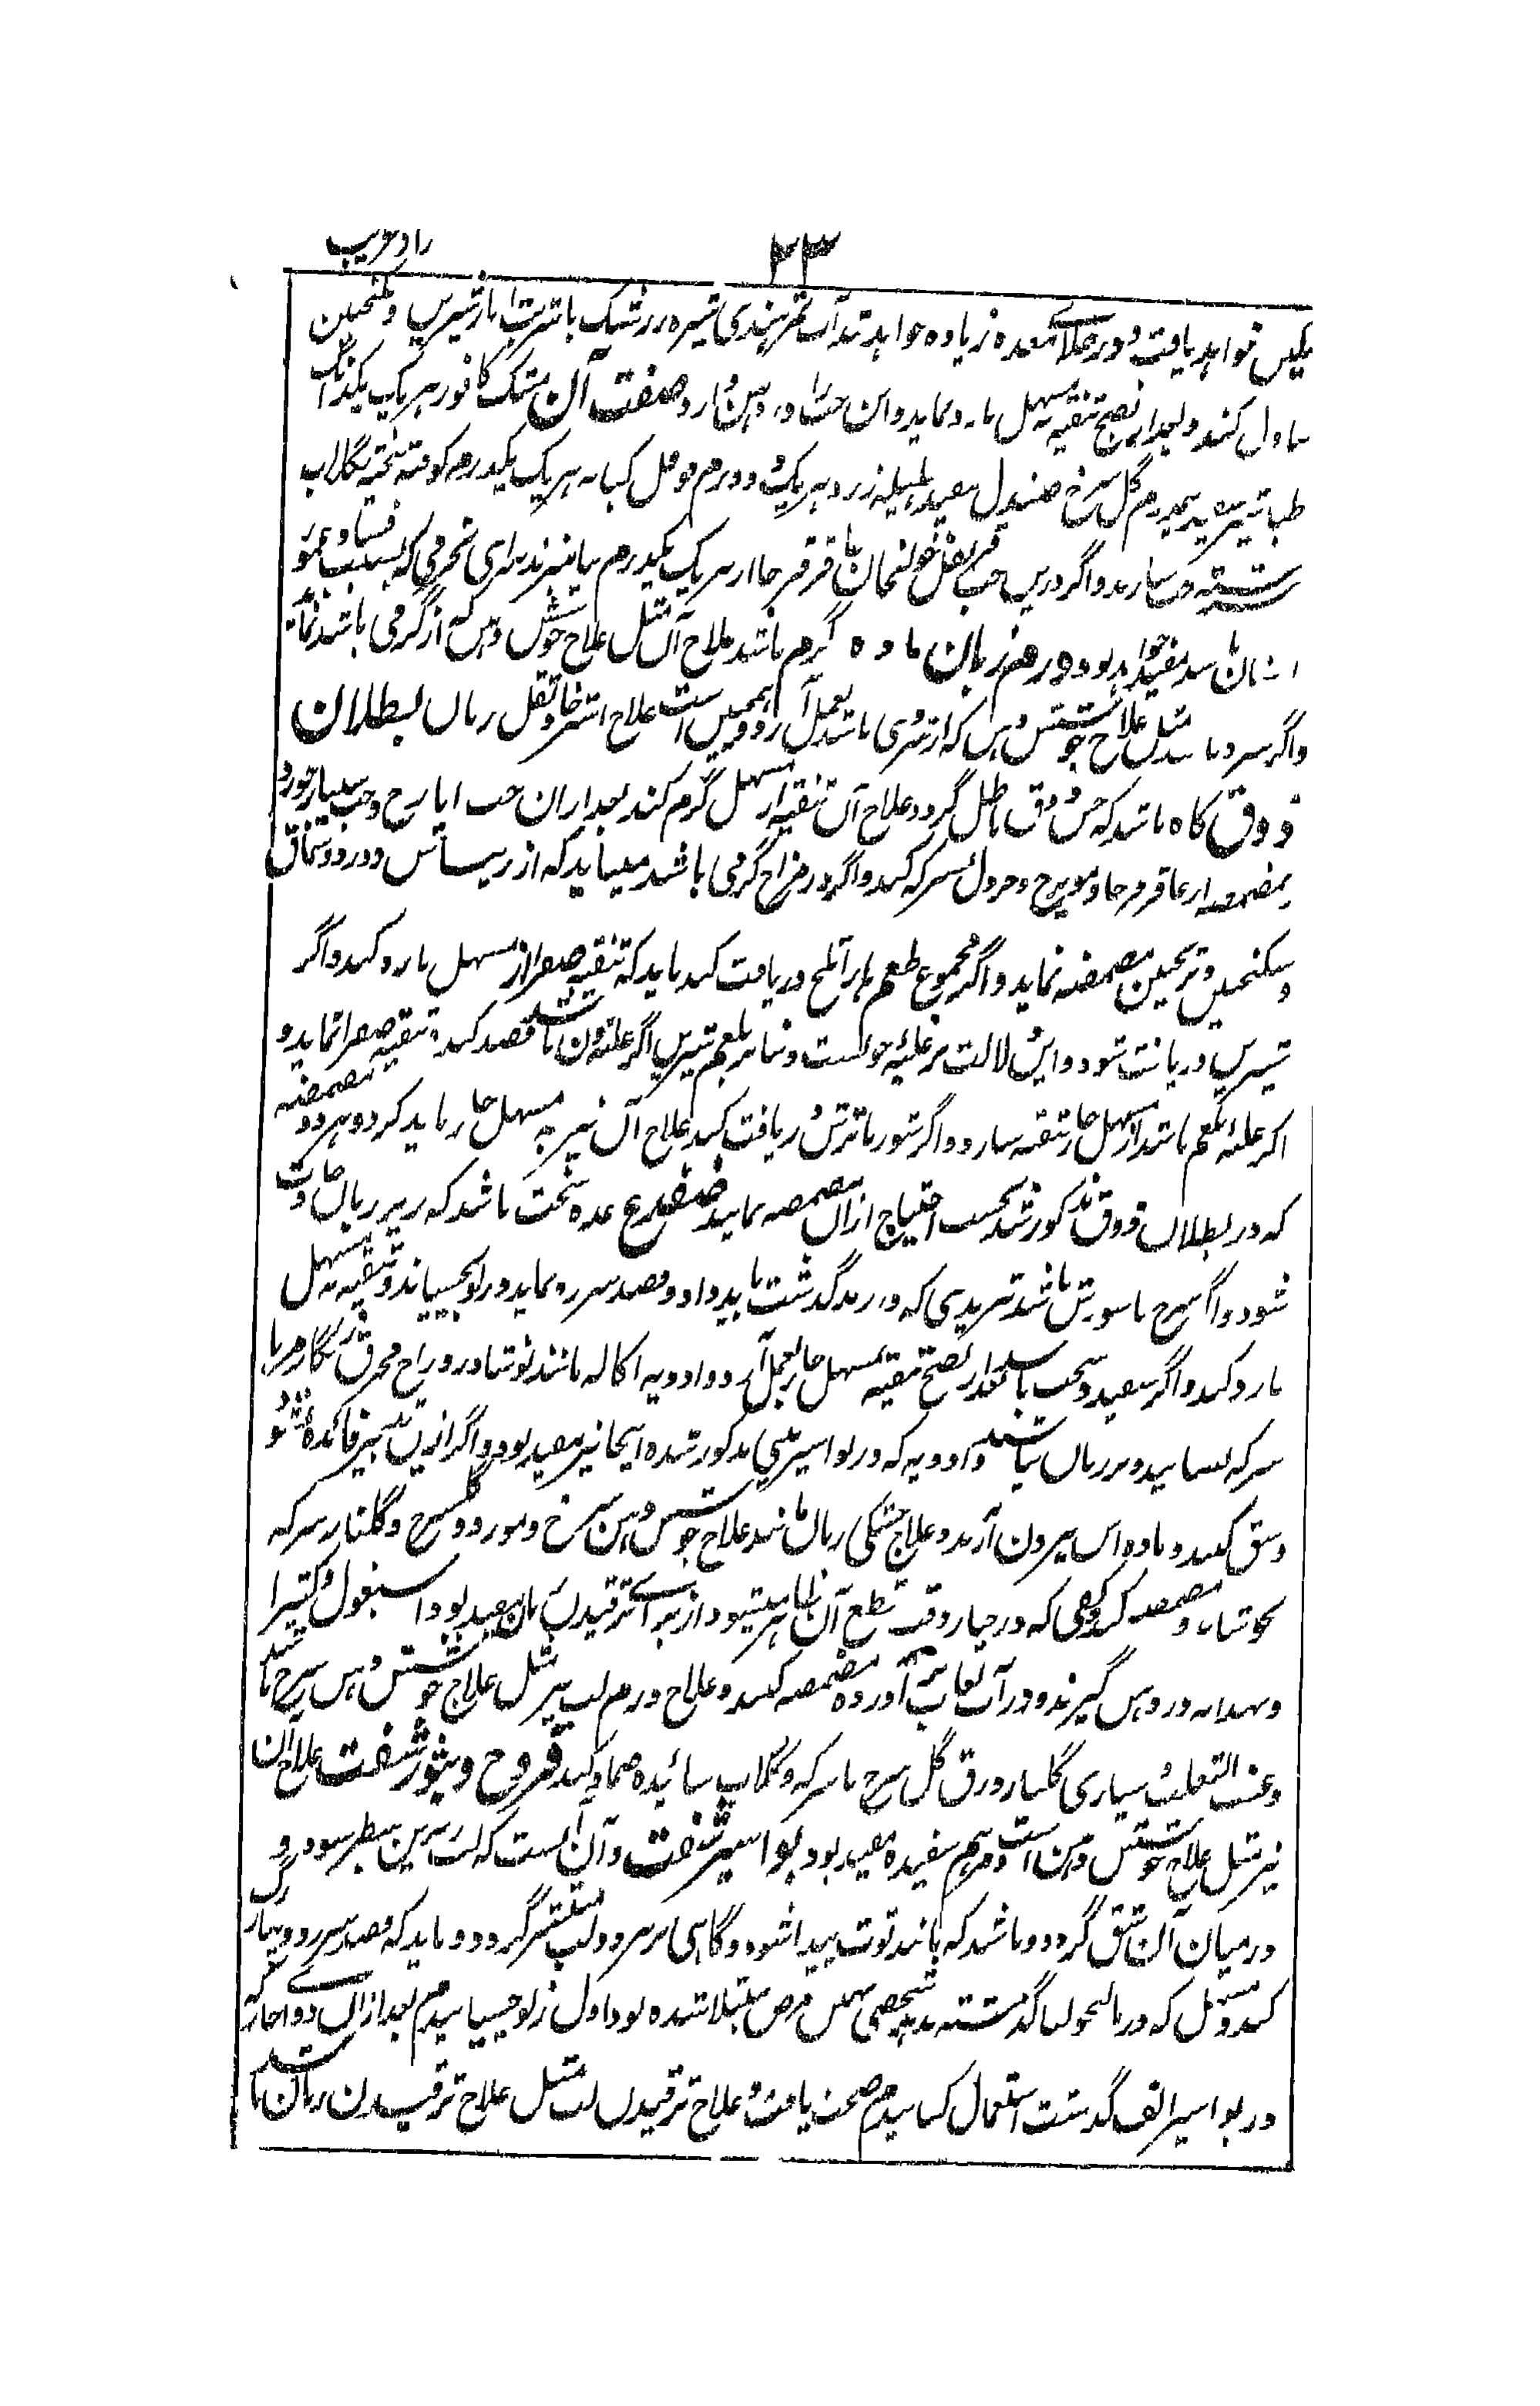 زاد غریب
۲۳
خواهد یافت و در خلای معده زیاده خواهد شد آب تمر هندی شیره زرشک با شربت انار شیرین و سکنجبین
کنند و بعد از نضج تنقیه به مسهل بارد نماید و این حب را در دهن دارد صفت آن مشک کافور هر یک یکدانگ
طباشیر سفید گل سرخ صندل سفید هلیله زرد هر یک دو درم فوفل کبابه هر یک یکدرم کوفته بیخته بگلاب
سرشته حب سازند و اگر درین حب قرنفل خولنجان عاقرقرحا از هر یک یکدرم بیامیزند برای که بسبب فساد عمور
اسنان باشد مفید خواهد بود ورم زبان ماده گرم باشد علاج آن مثل علاج جوشش دهن که از گرمی باشد نماید
و اگر سرد باشد مثل علاج جوشش دهن که از سردی باشد بعمل آرد و همین است علاج استرخا و ثقل زبان بطلان
ذوق گاه باشد که حس ذوق باطل گردد علاج آن تنقیه از مسهل گرم کند بعد از آن حب ایارج و حب
مضمضه از عاقرقرحا و مویزج و خردل سرکه کند و اگر در مزاج گرمی باشد میباید که از و سماق
و سکنجبین و ترنجبین مضمضه نماید و اگر مجموع طعم ها را تلخ دریافت کند باید که تنقیه صفرا از مسهل بارد کند و اگر
شیرین دریافت شود و این دلالت بر غلبه خونست و یا بر بلغم شیرین اگر غلبه خون باشد فصد کند تنقیه صفرا نماید و
اگر غلبه بلغم باشد از مسهل حار تنقیه سازد و اگر شور یا ترش دریافت کند علاج آن نیز به مسهل حار باید کرد و هر دو مضمضه
که در بطلان ذوق مذکور شد بحسب احتیاج از آن مضمضه نمایند ضفدع غده سخت باشد که زیر زبان حادث
شود و اگر سرخ با سوزش باشد تبریدی که در رمد گذشت باید داد و فصد سررو نماید و زلو بچسپاند و تنقیه به مسهل
بارد کند و اگر سفید و سخت باشد بعد از نضج تنقیه بمسهل حار بعمل آرد و ادویه اکاله مانند نوشادر و زاج محرق و زنگار مر با
سرکه بسایند و بر زبان و ادویه که در بواسیر بینی مذکور شده اینجا نیز مفید بود و اگر ازین تدبیر فائده نشود
و شق کنند و ماده اش بیرون آرند و علاج خشکی زبان مانند علاج جوشش دهن سرخ و مورد و گلسرخ و گلنار سرکه
بجوشانند و مضمضه کنند و کفی که در خیار وقت قطع آن ظاهر میشود از برای ترقیدن زبان مفید بود و اسبغول و کتیرا
و بهدانه در دهن گیرند و در آن لعاب آورده مضمضه کنند و علاج ورم لب نیز مثل علاج جوشش دهن سرخ باشد
و عنب الثعلب و سپاری گلنار و ورق گل سرخ با سرکه و گلاب سائیده ضماد کنند قروح و بثور شفت علاج آن
نیز مثل علاج جوشش دهن است و مرهم سفیده مفید بود بواسیر شفت و آن آنست که لب زیرین سطبر شود و
درمیان آن شق گردد و باشد که مانند توت پیدا شود و گاهی بر هر دو لب منتشر گردد و باید که فصد سررو و چهار رگ
کند و مثل که در مالیخولیا گذشته شخصی بهمین مرض مبتلا شده بود اول زلو چسپانیدم بعد از آن دوای حار که
در بواسیر الف گذشت استعمال کنانیدم صحت یافت و علاج ترقیدن لب مثل علاج ترقیدن زبان باشد